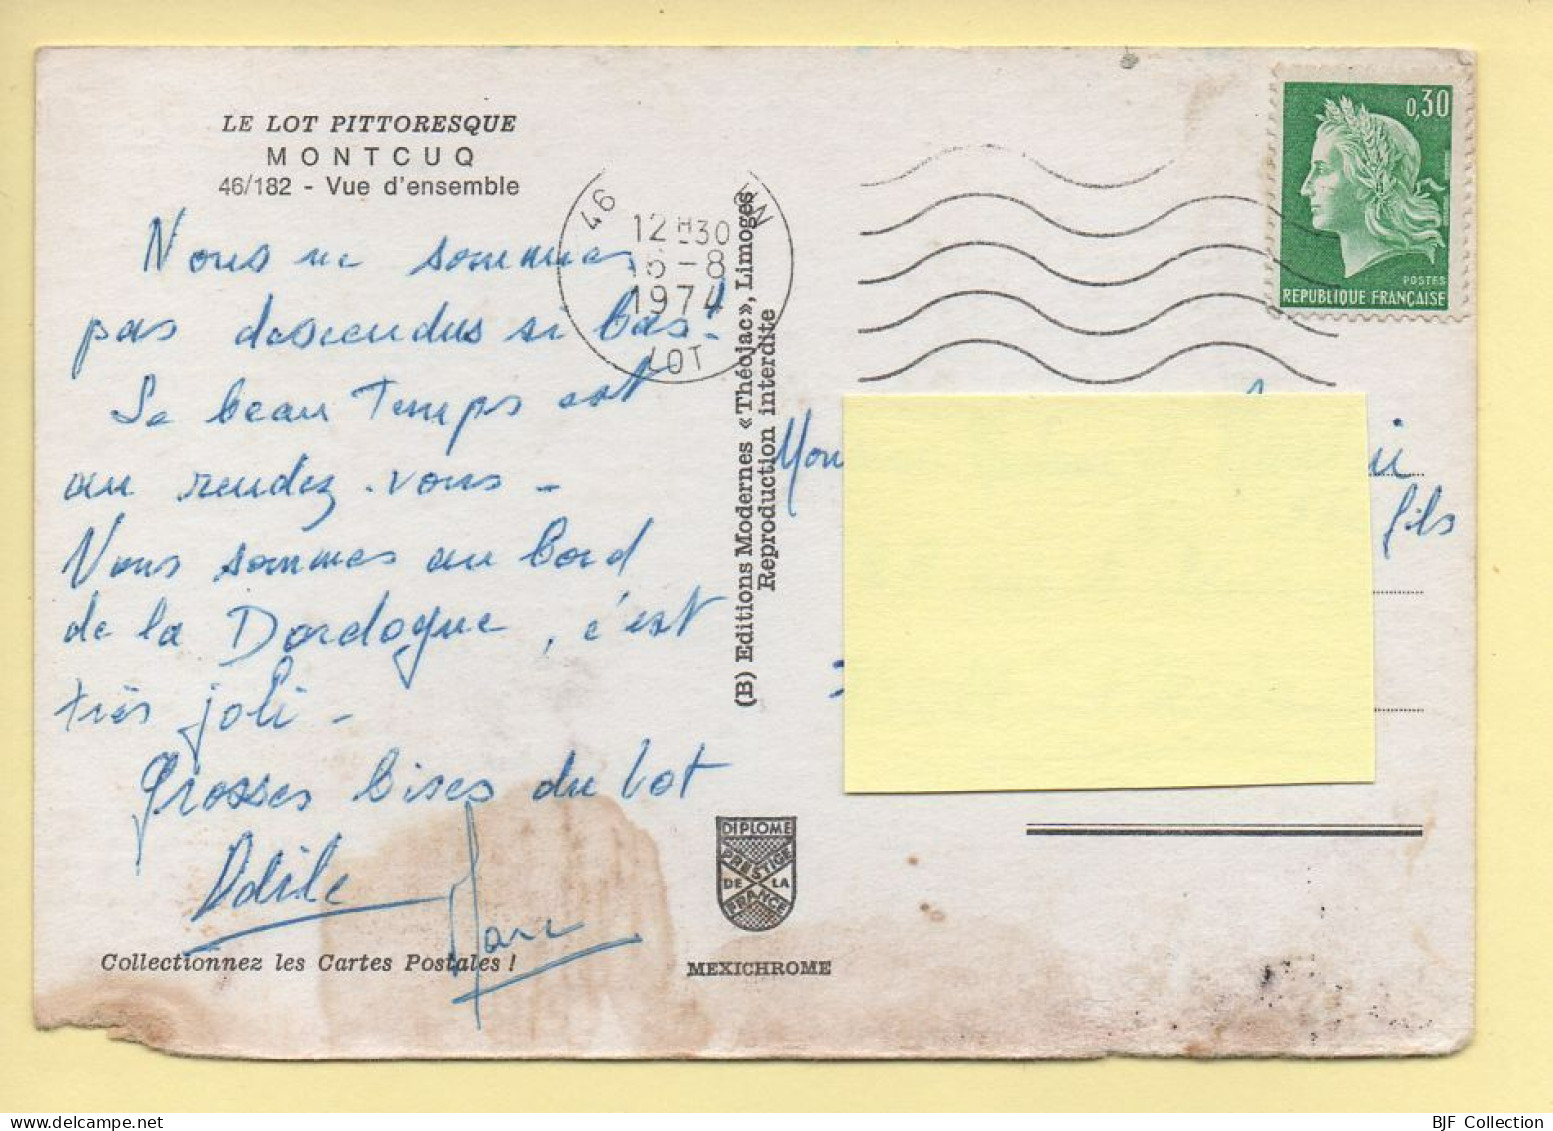 LE LOT PITTORESQUE
MONTCUQ
46/182 - Vue d'ensemble
Nous ne sommes
pas descendus si bas!
Le beau temps est
au rendez-vous -
Nous sommes au bord
de la Dordogne, c'est
très joli -
Grosses bises du Lot
Odile
Marc
Collectionnez les Cartes Postales !
46
12 H 30
16 - 8
1974
LOT
(B) Editions Modernes « Théojac », Limoges
Reproduction interdite
DIPLOME
PRESTIGE
DE LA
FRANCE
MEXICHROME
0,30
POSTES
REPUBLIQUE FRANÇAISE
fils
BJF Collection